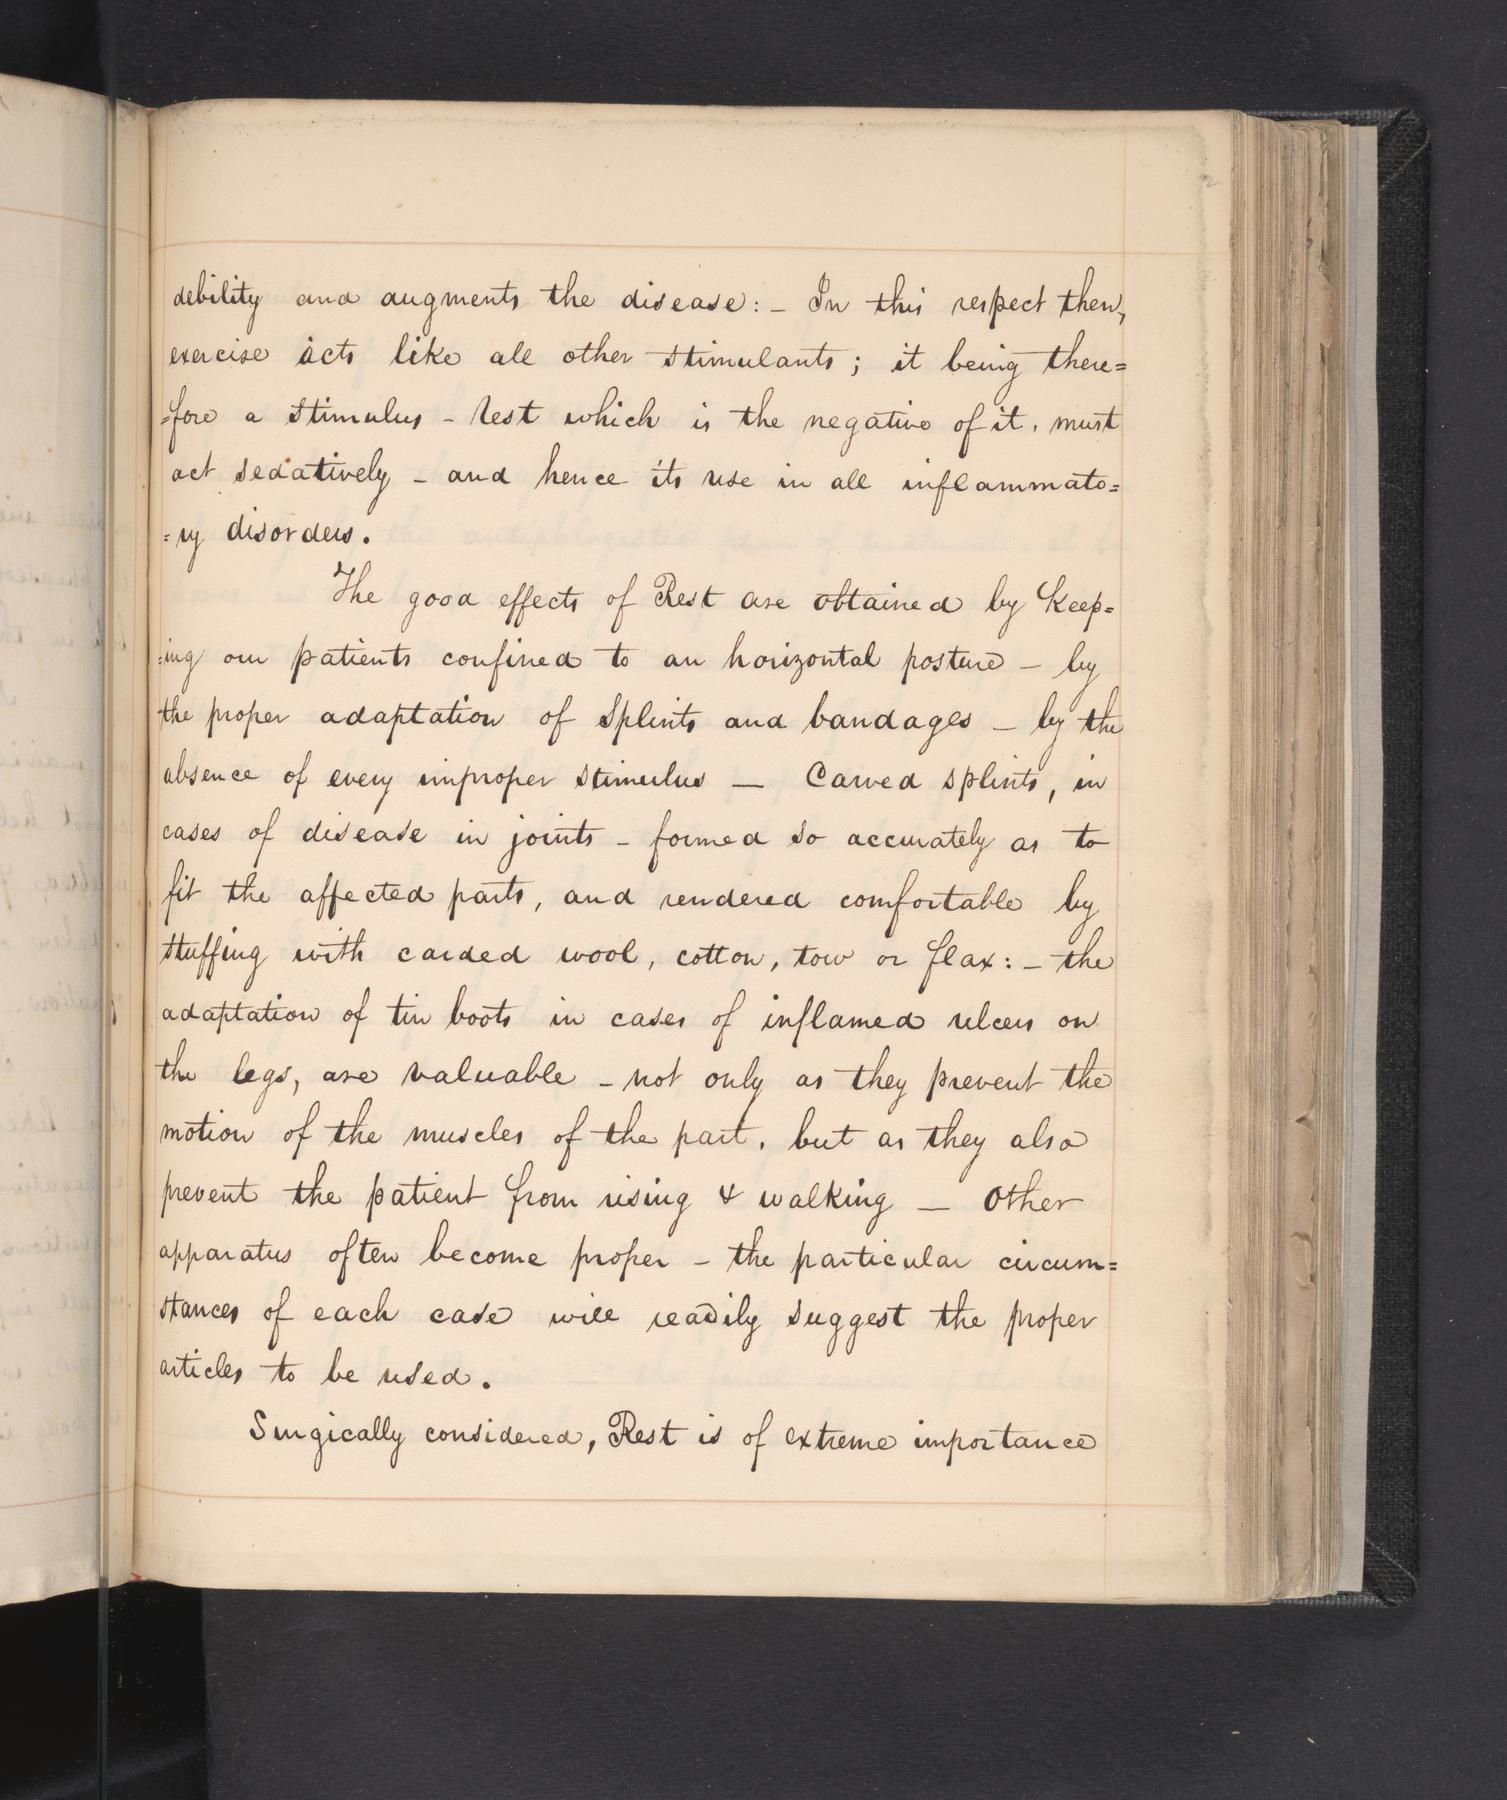 debility and augments the disease: – In this respect then,
exercise acts like all other stimulants; it being there=
=fore a stimulus – Rest which is the negative of it, must
act sedatively – and hence its use in all inflammato=
=ry disorders.
The good effects of Rest are obtained by keep=
=ing our patients confined to an horizontal posture – by
the proper adaptation of splints and bandages – by the
absence of every improper stimulus — Carved splints, in
cases of disease in joints – formed so accurately as to
fit the affected parts, and rendered comfortable by
stuffing with carded wool, cotton, tow or flax: – the
adaptation of tin boots in cases of inflamed ulcers on
the legs, are valuable – not only as they prevent the
motion of the muscles of the part, but as they also
prevent the patient from rising & walking — Other
apparatus often become proper – the particular circum=
stances of each case will readily suggest the proper
articles to be used.
Surgically considered, Rest is of extreme importance